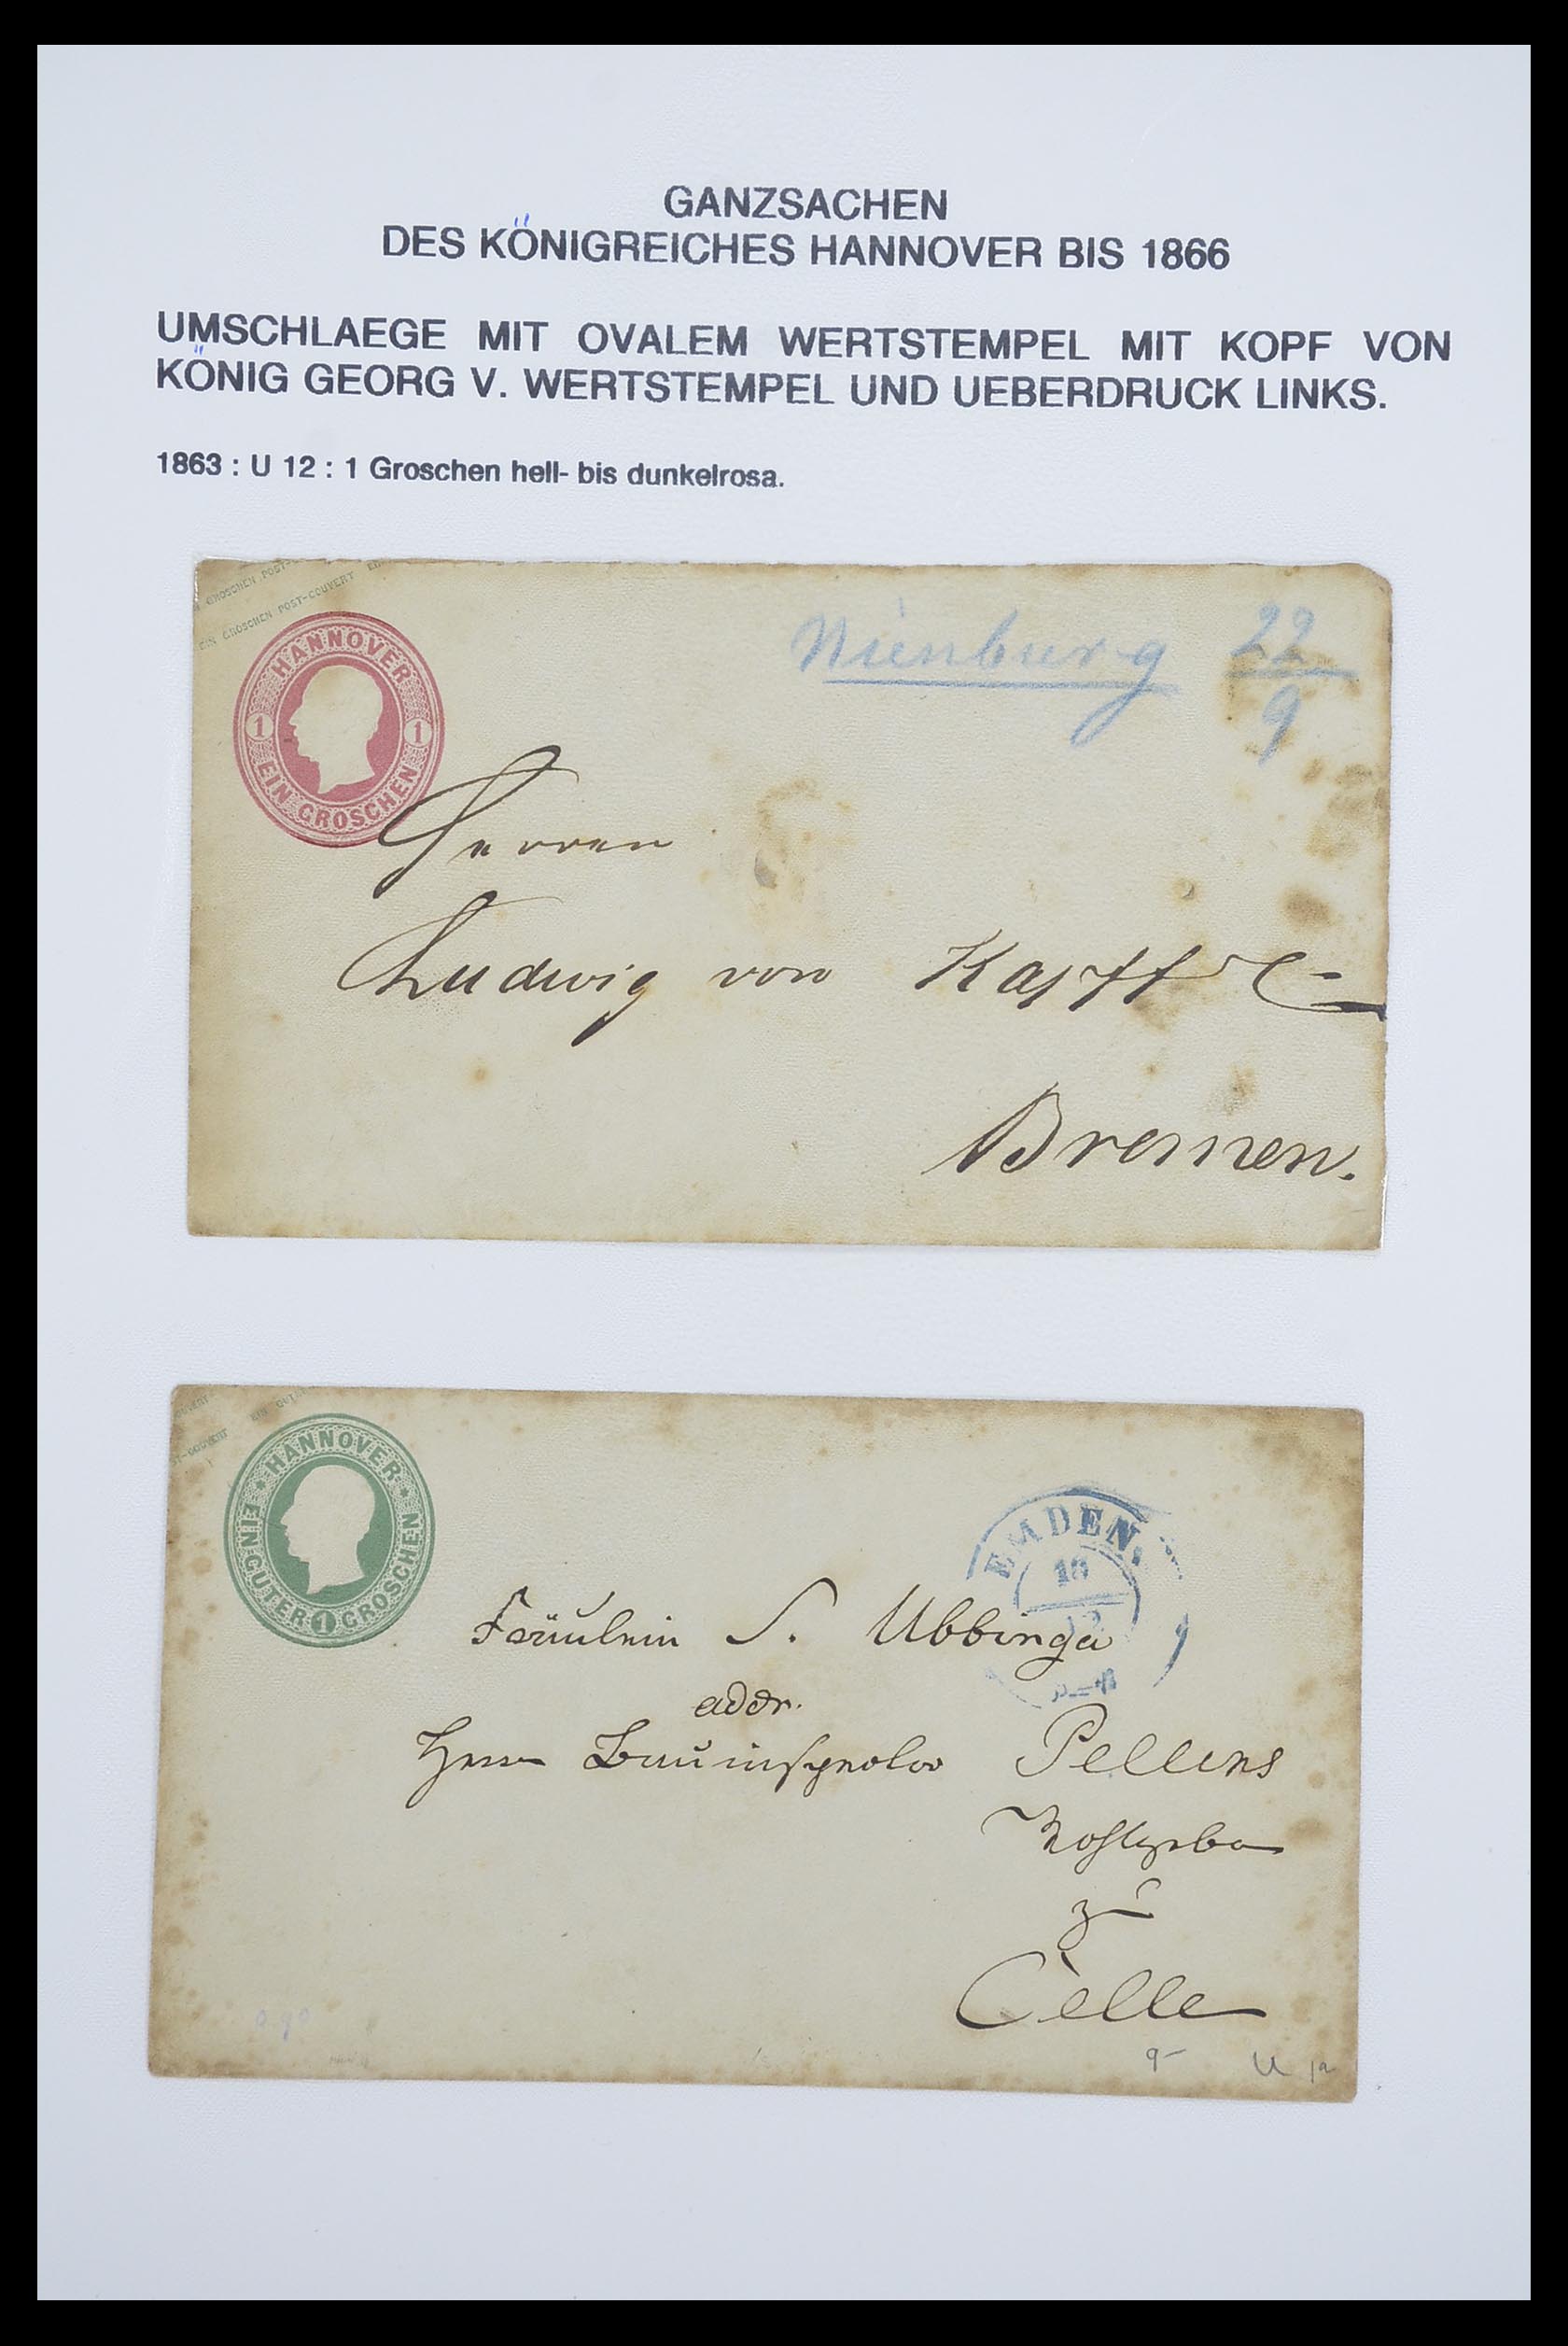 GANZSACHEN
DES KÖNIGREICHES HANNOVER BIS 1866
UMSCHLAEGE MIT OVALEM WERTSTEMPEL MIT KOPF VON
KÖNIG GEORG V. WERTSTEMPEL UND UEBERDRUCK LINKS.
1863 : U 12 : 1 Groschen hell- bis dunkelrosa.
GROSCHEN POST-
EIN GROSCHEN POST-COUVERT
HANNOVER
1 1
EIN GROSCHEN
Nienburg 22
9
Herren
Ludwig von Kapff
Bremen.
HANNOVER
EIN GUTER 1 GROSCHEN
EMDEN.
Fräulein S. Ubbinga
addr.
Herrn Bauinspector Pellens
zu
Celle
9- U